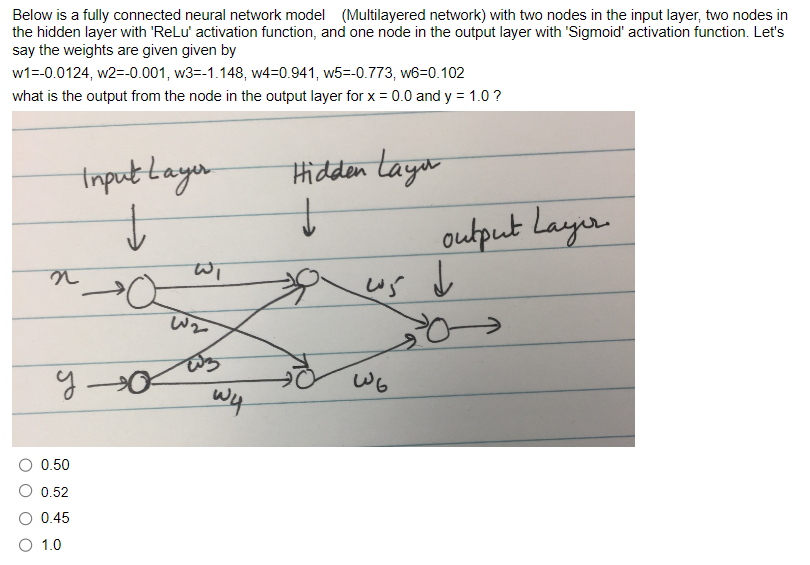 Below is a fully connected neural network model (Multilayered network) with two nodes in the input layer, two nodes in
the hidden layer with 'ReLu' activation function, and one node in the output layer with 'Sigmoid' activation function. Let's
say the weights are given given by
w1=-0.0124, w2=-0.001, w3=-1.148, w4=0.941, w5=-0.773, w6=0.102
what is the output from the node in the output layer for x = 0.0 and y = 1.0 ?
Input Layer
Hidden Layer
output Layer
x
w1
w5
w2
w3
y
w4
w6
0.50
0.52
0.45
1.0